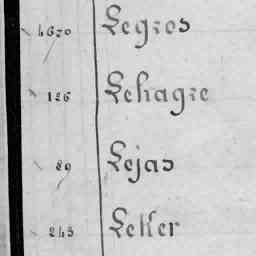 4630 Legros
126 Lehagre
89 Lejas
245 Leker